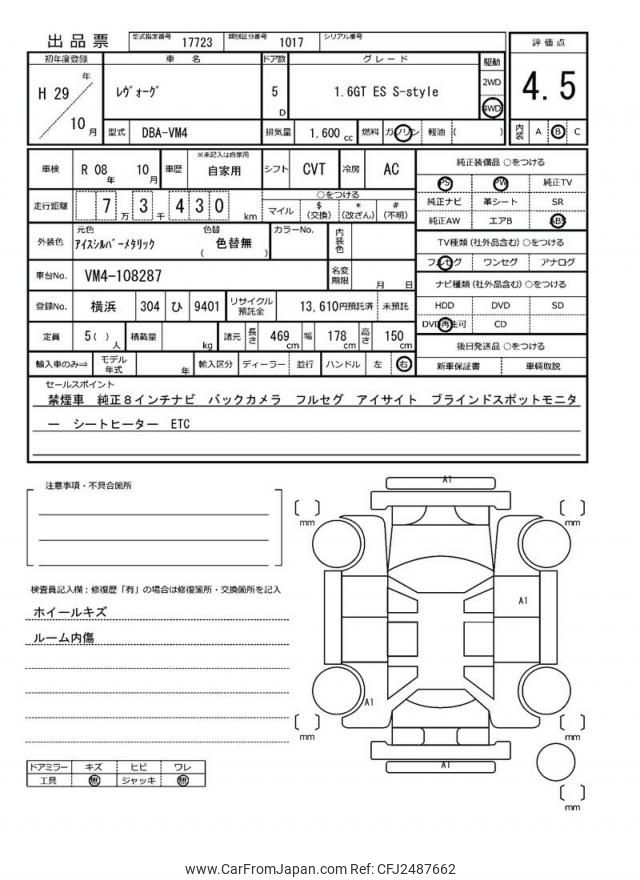 出品票
型式指定番号 17723 類別区分番号 1017 シリアル番号
初年度登録 車名 ドア数 グレード 駆動 評価点
H 29 年 10 月
レヴォーグ 5 D 1.6GT ES S-style 2WD 4WD 4.5
型式 DBA-VM4 排気量 1,600 cc 燃料 ガソリン 軽油 ( ) 内装 A B C
車検 R 08 年 10 月 車歴 ※未記入は自家用 自家用 シフト CVT 冷房 AC
純正装備品 ○をつける
PS PW 純正TV
純正ナビ 革シート SR
純正AW エアB ABS
走行距離 7 万 3 千 4 3 0 km
○をつける
マイル $ (交換) * (改ざん) # (不明)
外装色 元色 アイスシルバーメタリック 色替 ( 色替無 ) カラーNo. 内装色
TV種類 (社外品含む) ○をつける
フルセグ ワンセグ アナログ
車台No. VM4-108287 名変期限 月 日
ナビ種類 (社外品含む) ○をつける
HDD DVD SD
DVD再生可 CD
登録No. 横浜 304 ひ 9401 リサイクル預託金 13,610円預託済 未預託
定員 5( ) 人 積載量 kg 諸元 長さ 469 cm 幅 178 cm 高さ 150 cm
後日発送品 ○をつける
新車保証書 車輌取説
輸入車のみ⇒ モデル年式 年 輸入区分 ディーラー 並行 ハンドル 左 右
セールスポイント
禁煙車 純正8インチナビ バックカメラ フルセグ アイサイト ブラインドスポットモニタ
ー シートヒーター ETC
注意事項・不具合箇所
検査員記入欄:修復歴「有」の場合は修復箇所・交換箇所を記入
ホイールキズ
ルーム内傷
ドアミラー キズ ヒビ ワレ
工具 無 ジャッキ 無
A1
mm
mm
A1
A1
mm
mm
A1
mm
www.CarFromJapan.com Ref: CFJ2487662